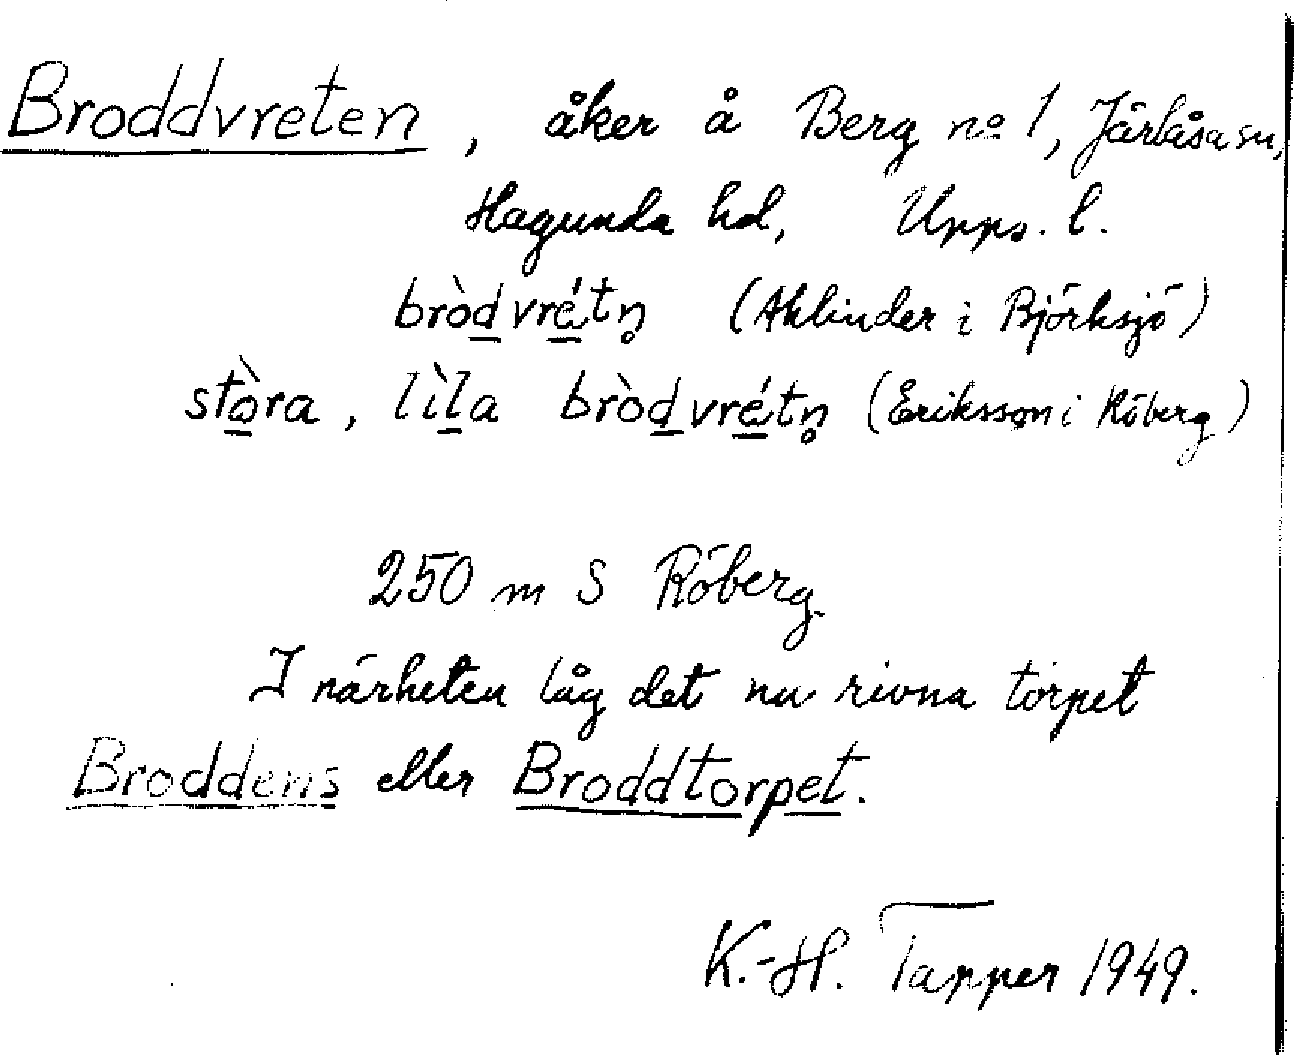 Broddvreten, åker å Berg no 1, Järlåsa sn,
Hagunda hd, Upps. l.
bròd̲vré̲tn̥ (Ahlinder i Björksjö)
stò̲ra, lìl̲a bròd̲vré̲tn̥ (Eriksson i Röberg)
250 m S Röberg.
I närheten låg det nu rivna torpet
Broddens eller Broddtorpet.
K.-H. Tapper 1949.